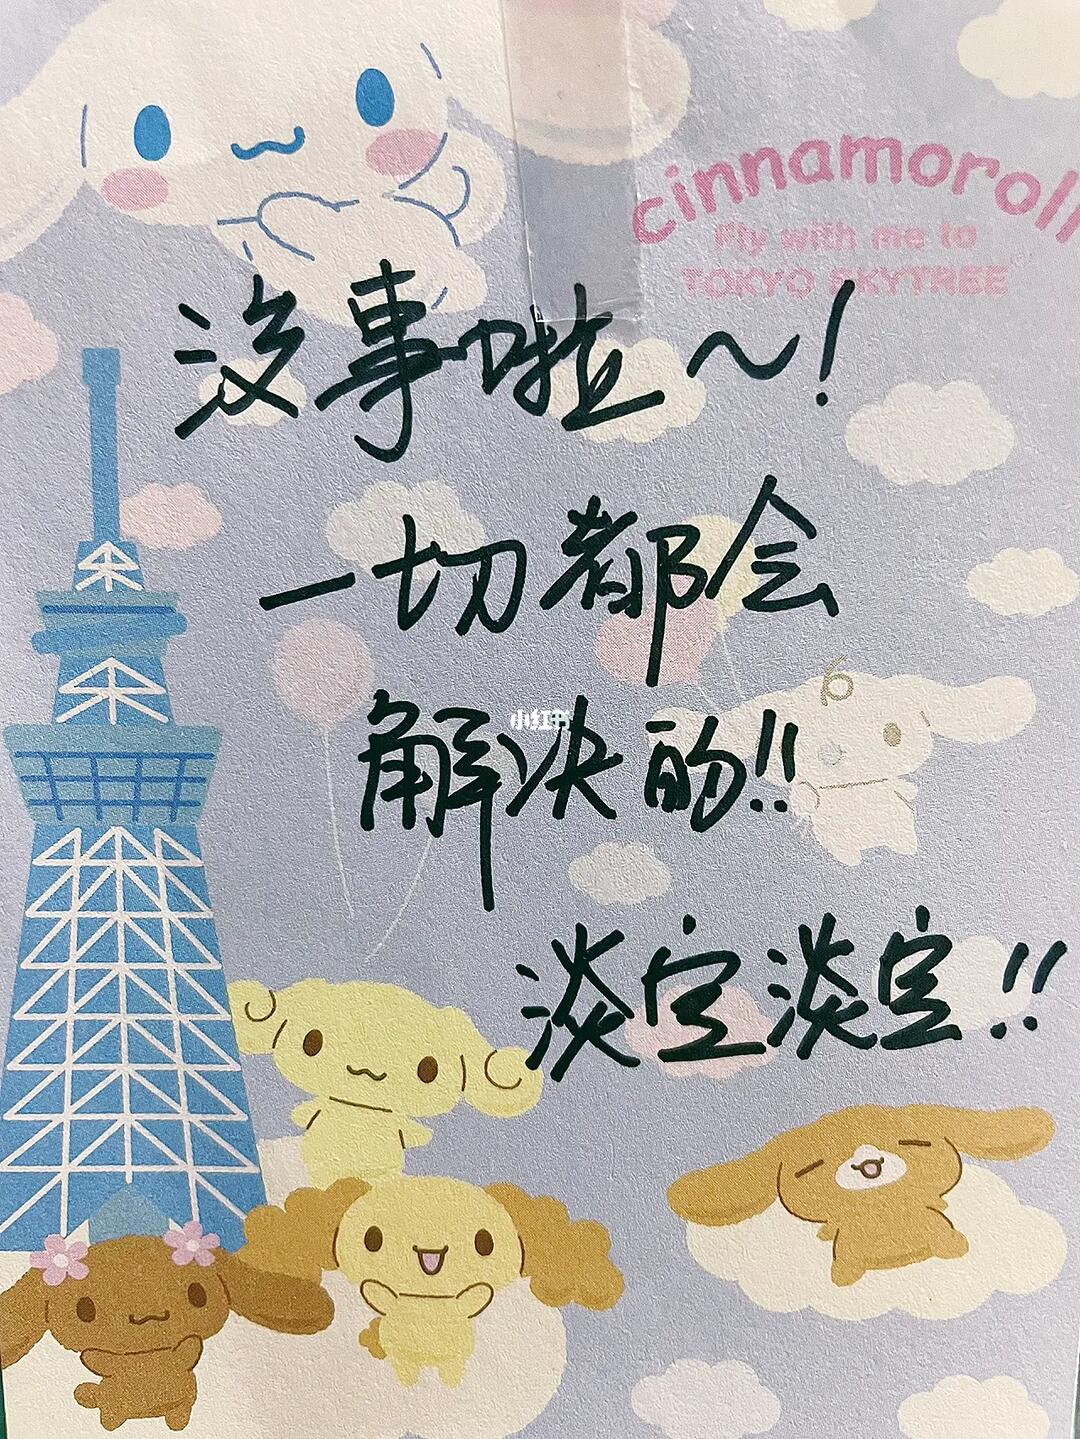 cinnamoroll
Fly with me to
TOKYO SKYTREE
没事啦～!
一切都会
解决的!!
小红书
淡定淡定!!